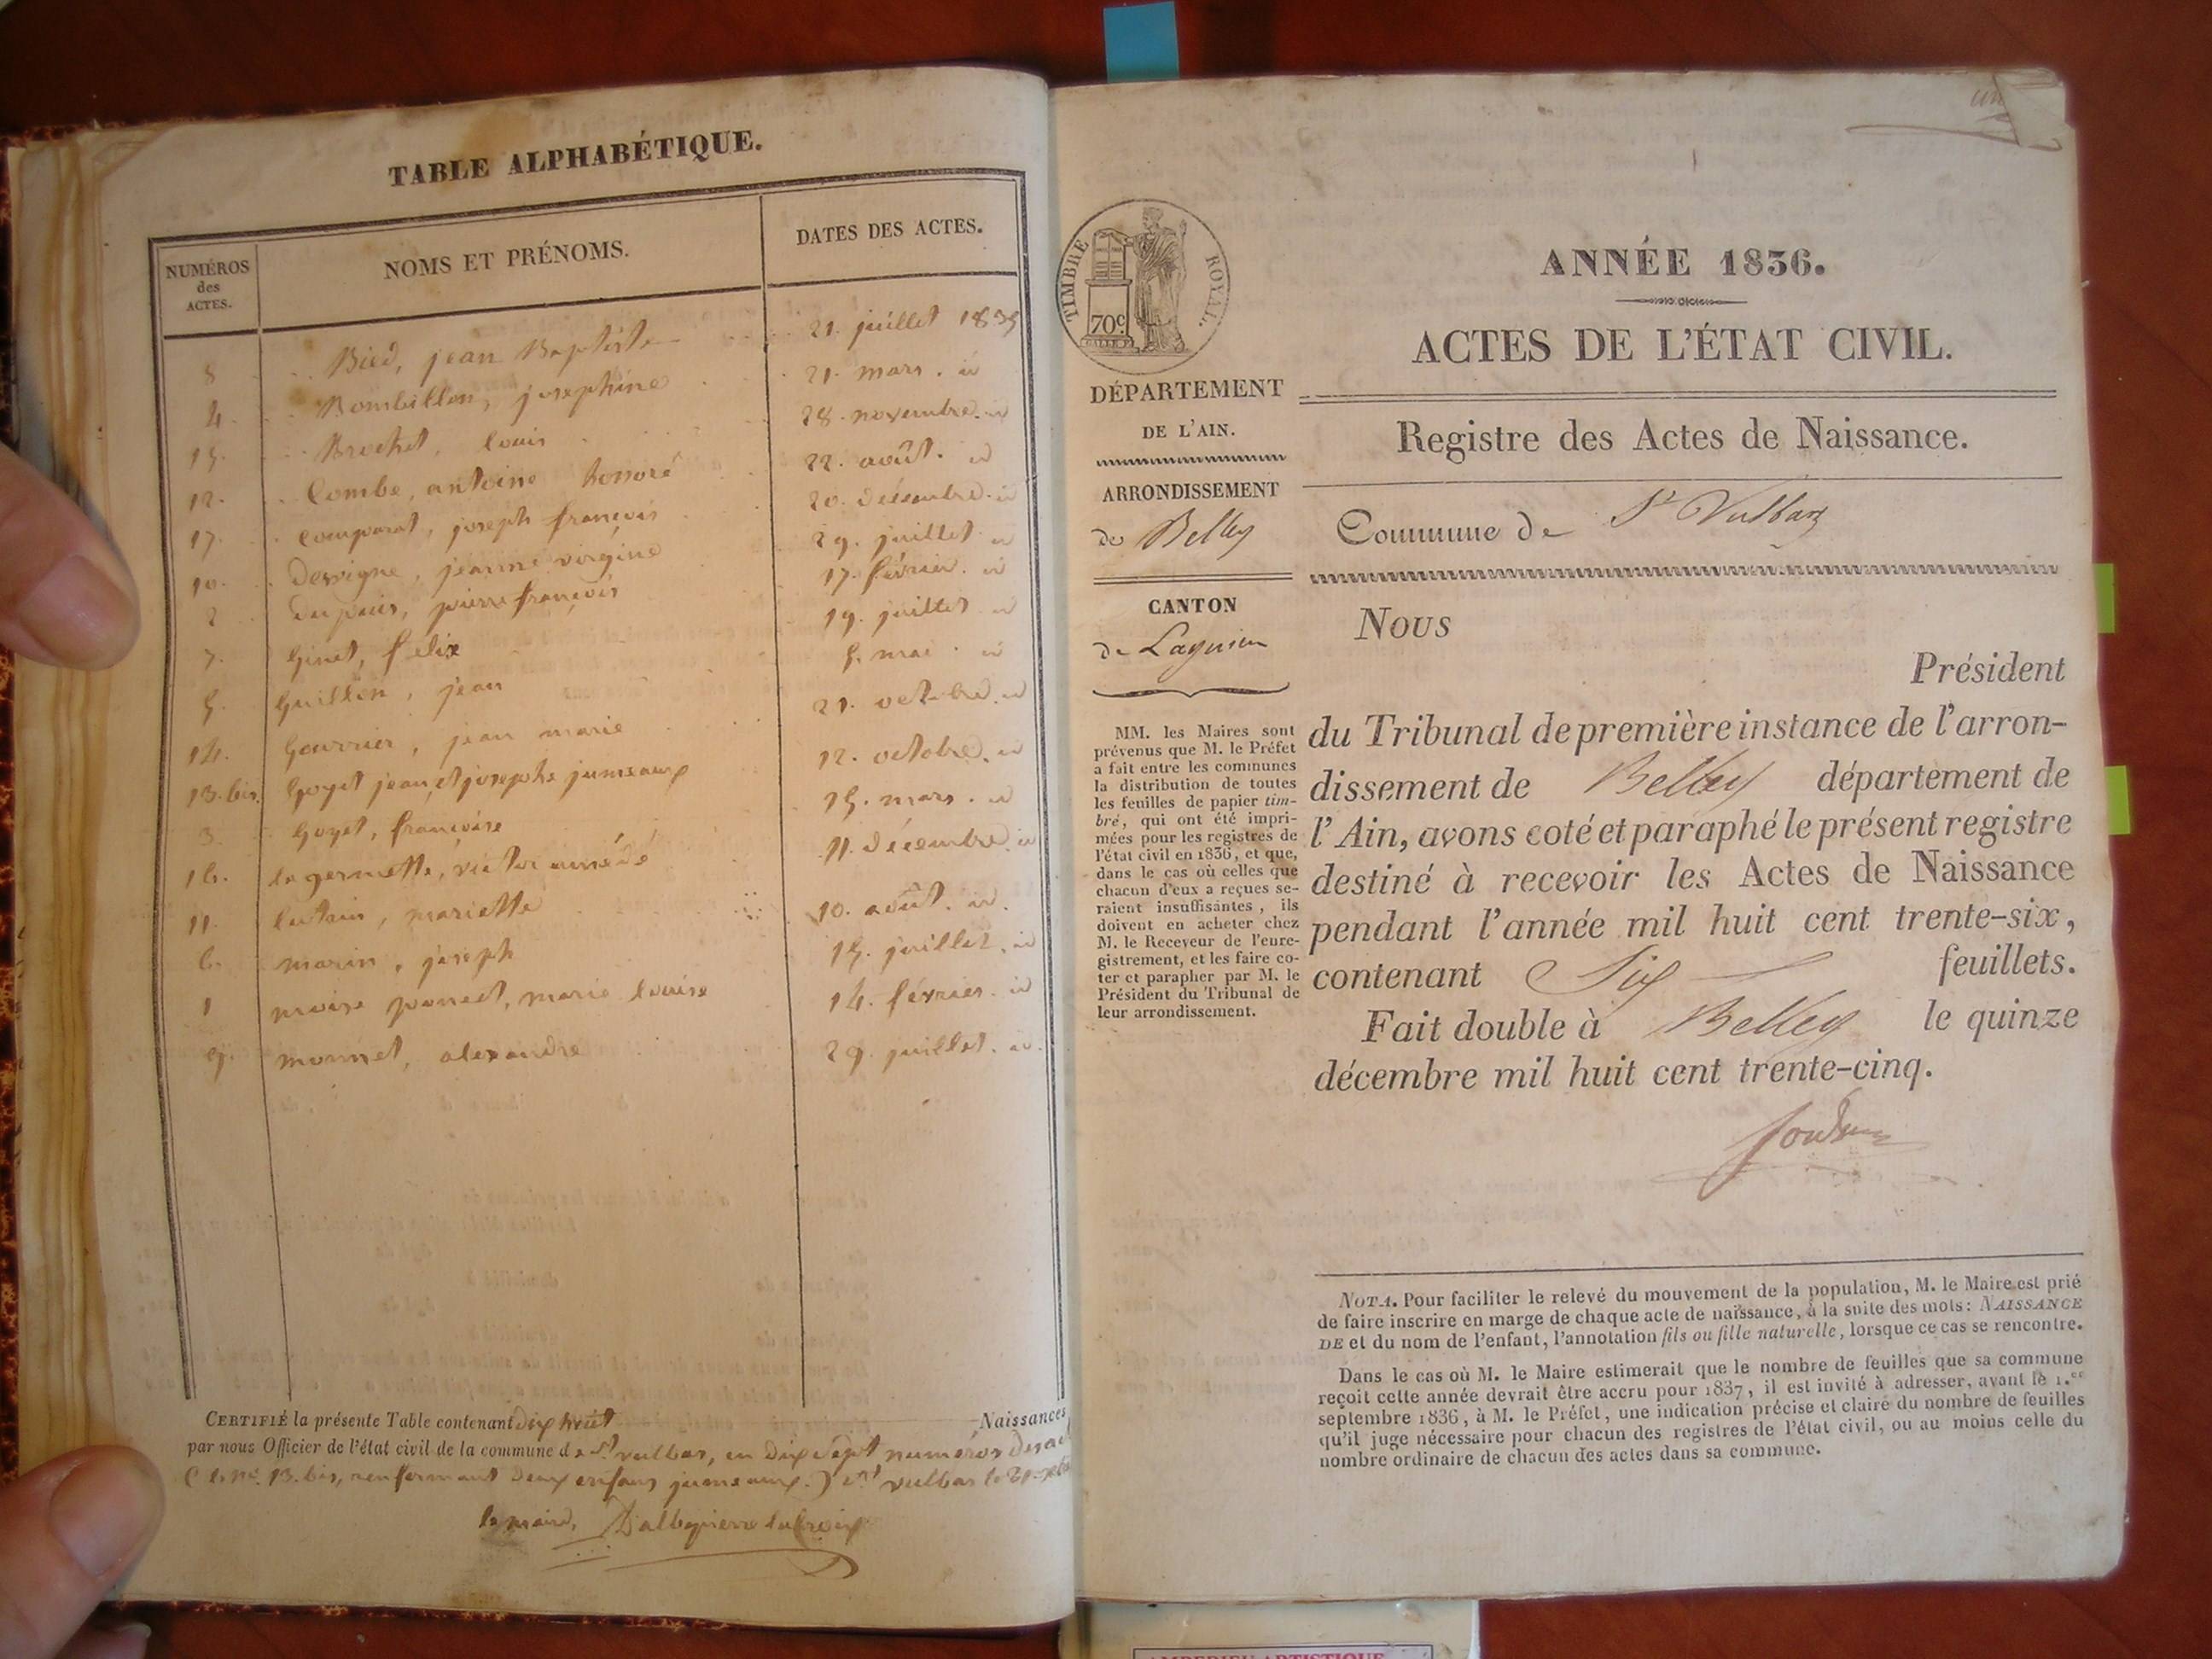 TABLE ALPHABÉTIQUE.
NUMÉROS
des
ACTES.
NOMS ET PRÉNOMS.
DATES DES ACTES.
8 Bied, jean Baptiste 21. juillet 1835
4. Bombillon, josephine 21. mars. id
15. Brochet, louis 28. novembre. id
12. Combe, antoine honoré 22. août. id
17. comparat, joseph françois 20. décembre. id
10. Dervigne, jeanne virginie 29. juillet id
2 dupuis, pierre françois 17. février. id
7. Ginet, félix 19. juillet id
5. Guillon, jean 5. mai. id
14. Gourrier, jean marie 21. octobre. id
13. bis. Goyet jean, et josephe jumeaux 12. octobre. id
3. Goyet, françoise 15. mars. id
16. la germette, victor amédé 11. décembre. id
11. lutain, mariette 10. août. id.
6. marin, joseph 15. juillet. id
1 moise poncet, marie louise 14. février. id
9. monnet, alexandre 29. juillet. id.
CERTIFIÉ la présente Table contenant dix huit Naissances
par nous Officier de l'état civil de la commune de St vulbas, en dix sept numéros
( le no. 13. bis, renfermant deux enfans jumeaux. ) St vulbas le 31
le maire,
TIMBRE ROYAL.
70c
DÉPARTEMENT
DE L'AIN.
ARRONDISSEMENT
de Belley
CANTON
de Lagnieu
MM. les Maires sont
prévenus que M. le Préfet
a fait entre les communes
la distribution de toutes
les feuilles de papier tim-
bré, qui ont été impri-
mées pour les registres de
l'état civil en 1836, et que,
dans le cas où celles que
chacun d'eux a reçues se-
raient insuffisantes, ils
doivent en acheter chez
M. le Receveur de l'enre-
gistrement, et les faire co-
ter et parapher par M. le
Président du Tribunal de
leur arrondissement.
ANNÉE 1836.
ACTES DE L'ÉTAT CIVIL.
Registre des Actes de Naissance.
Commune de St Vulbas
Nous
Président
du Tribunal de première instance de l'arron-
dissement de Belley département de
l'Ain, avons coté et paraphé le présent registre
destiné à recevoir les Actes de Naissance
pendant l'année mil huit cent trente-six,
contenant Six feuillets.
Fait double à Belley le quinze
décembre mil huit cent trente-cinq.
NOTA. Pour faciliter le relevé du mouvement de la population, M. le Maire est prié
de faire inscrire en marge de chaque acte de naissance, à la suite des mots: NAISSANCE
DE et du nom de l'enfant, l'annotation fils ou fille naturelle, lorsque ce cas se rencontre.
Dans le cas où M. le Maire estimerait que le nombre de feuilles que sa commune
reçoit cette année devrait être accru pour 1837, il est invité à adresser, avant le 1.er
septembre 1836, à M. le Préfet, une indication précise et claire du nombre de feuilles
qu'il juge nécessaire pour chacun des registres de l'état civil, ou au moins celle du
nombre ordinaire de chacun des actes dans sa commune.